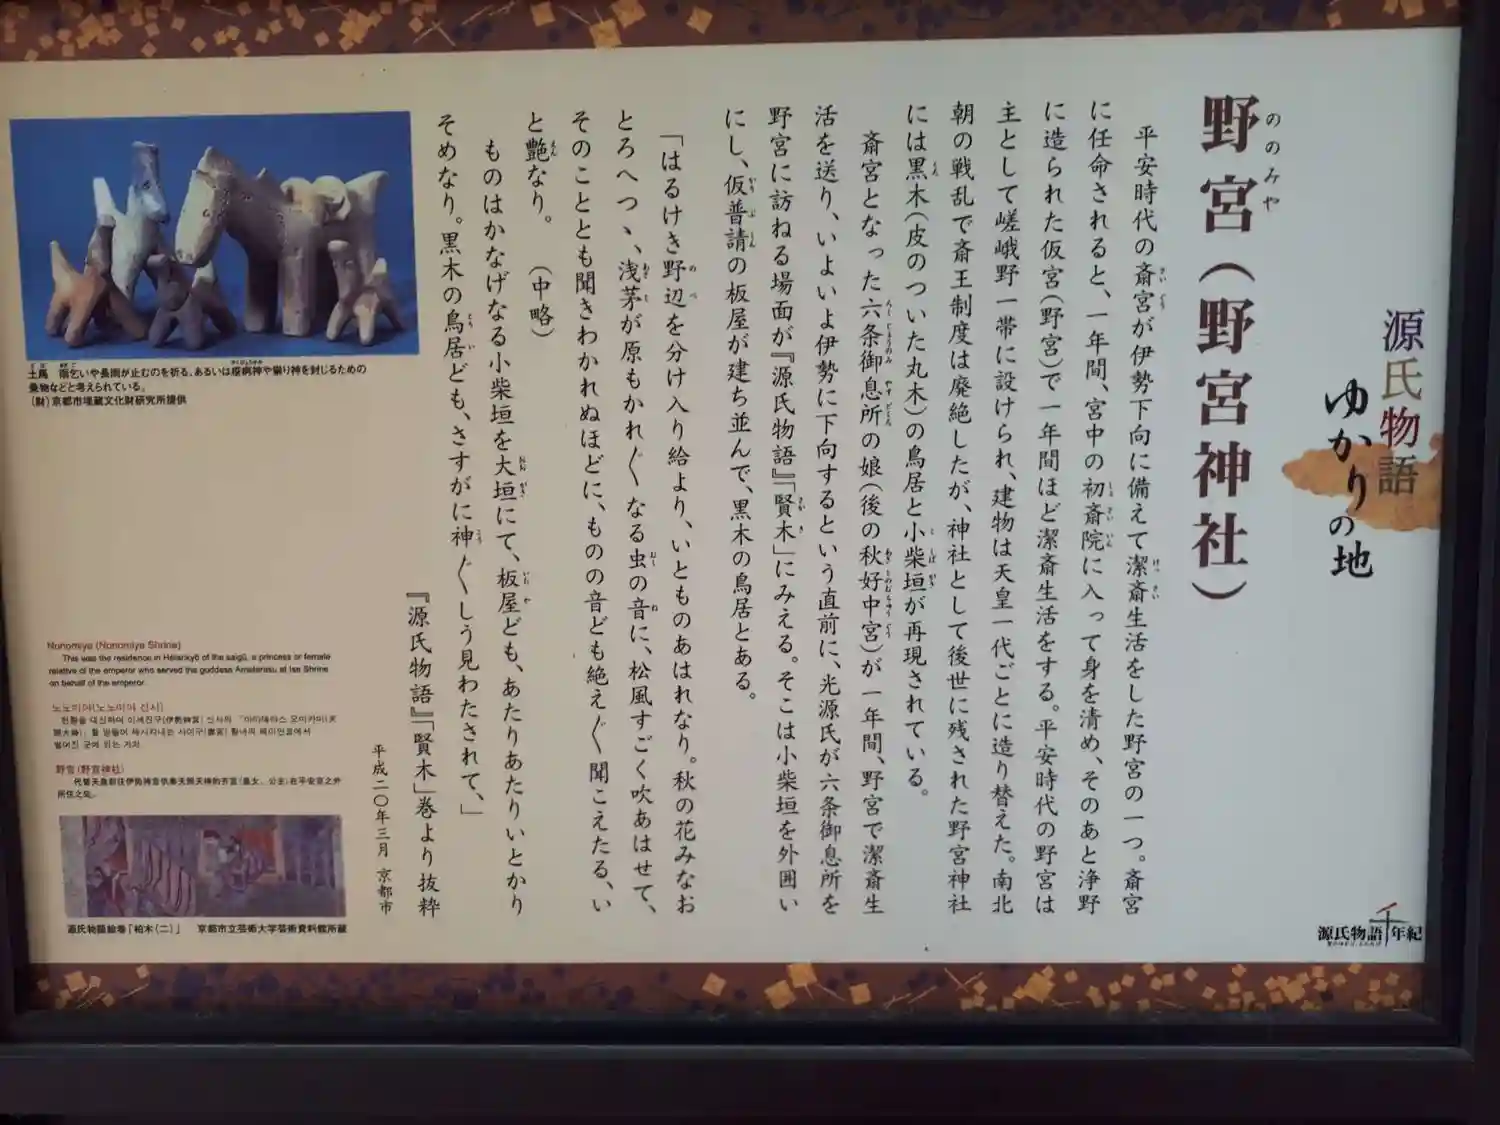 源氏物語
ゆかりの地
野宮（野宮神社）
ののみや
平安時代の斎宮が伊勢下向に備えて潔斎生活をした野宮の一つ。斎宮
に任命されると、一年間、宮中の初斎院に入って身を清め、そのあと浄野
に造られた仮宮（野宮）で一年間ほど潔斎生活をする。平安時代の野宮は
主として嵯峨野一帯に設けられ、建物は天皇一代ごとに造り替えた。南北
朝の戦乱で斎王制度は廃絶したが、神社として後世に残された野宮神社
には黒木（皮のついた丸木）の鳥居と小柴垣が再現されている。
斎宮となった六条御息所の娘（後の秋好中宮）が一年間、野宮で潔斎生
活を送り、いよいよ伊勢に下向するという直前に、光源氏が六条御息所を
野宮に訪ねる場面が『源氏物語』「賢木」にみえる。そこは小柴垣を外囲い
にし、仮普請の板屋が建ち並んで、黒木の鳥居とある。
「はるけき野辺を分け入り給より、いとものあはれなり。秋の花みなお
とろへつゝ、浅茅が原もかれ〴〵なる虫の音に、松風すごく吹あはせて、
そのこととも聞きわかれぬほどに、ものの音ども絶え〴〵聞こえたる、い
と艶なり。（中略）
ものはかなげなる小柴垣を大垣にて、板屋ども、あたりあたりいとかり
そめなり。黒木の鳥居ども、さすがに神〴〵しう見わたされて、」
『源氏物語』「賢木」巻より抜粋
平成二〇年三月 京都市
土馬 雨乞いや長雨が止むのを祈る、あるいは疫病神や祟り神を封じるための
（財）京都市埋蔵文化財研究所提供
Nonomiya (Nonomiya Shrine)
This was the residence in Heiankyō of the saigū, a princess or female
relative of the emperor who served the goddess Amaterasu at Ise Shrine
on behalf of the emperor.
노노미야(노노미야 신사)
野宫(野宫神社)
源氏物語絵巻「柏木（二）」 京都市立芸術大学芸術資料館所蔵
源氏物語千年紀